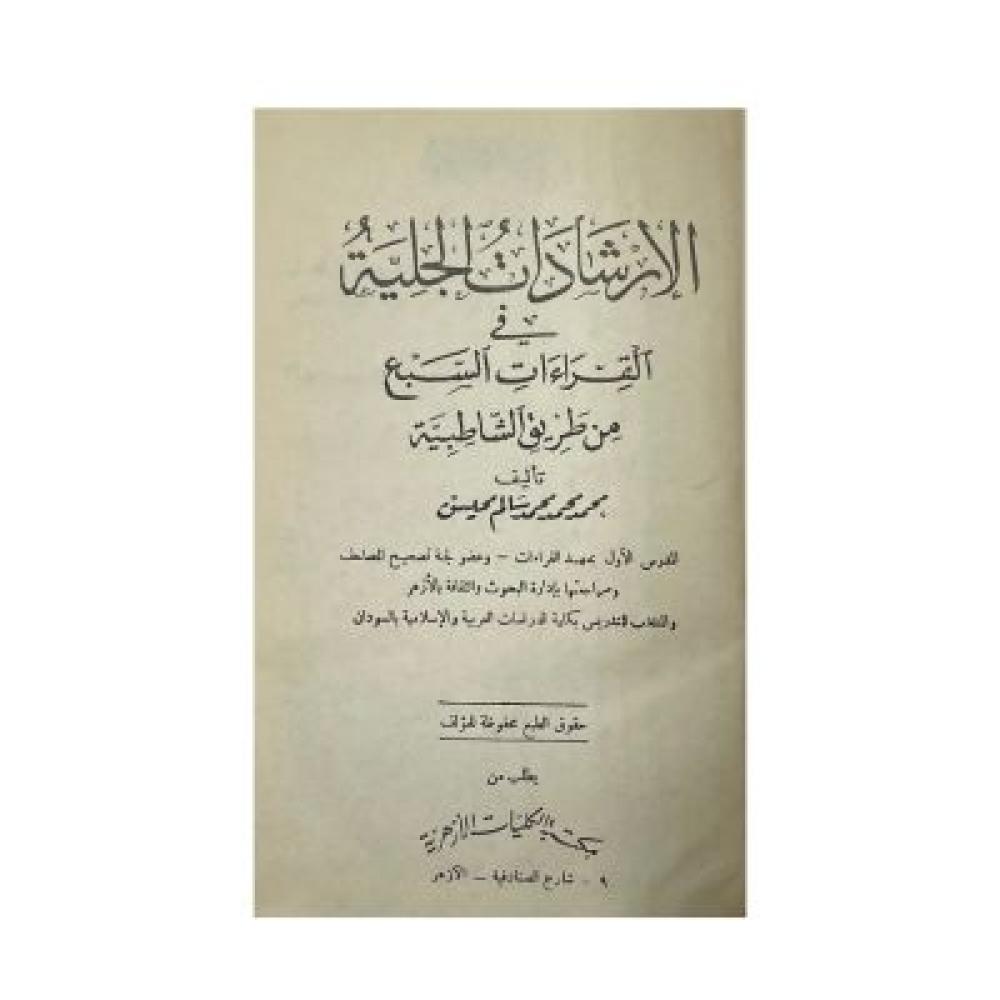 الإرشَادَاتُ الجَليَّةُ
في
القِرَاءَاتِ السَّبْعِ
مِن طَرِيقِ الشَّاطِبِيَّة
تأليف
محمد محمد محمد سالم محيسن
المدرس الأول بمعهد القراءات - وعضو لجنة تصحيح المصاحف
ومراجعتها بإدارة البحوث والثقافة بالأزهر
والمنتدب للتدريس بكلية الدراسات العربية والإسلامية بالسودان
حقوق الطبع محفوظة للمؤلف
يطلب من
مكتبة الكليات الأزهرية
٩ - شارع الصنادقية - الأزهر